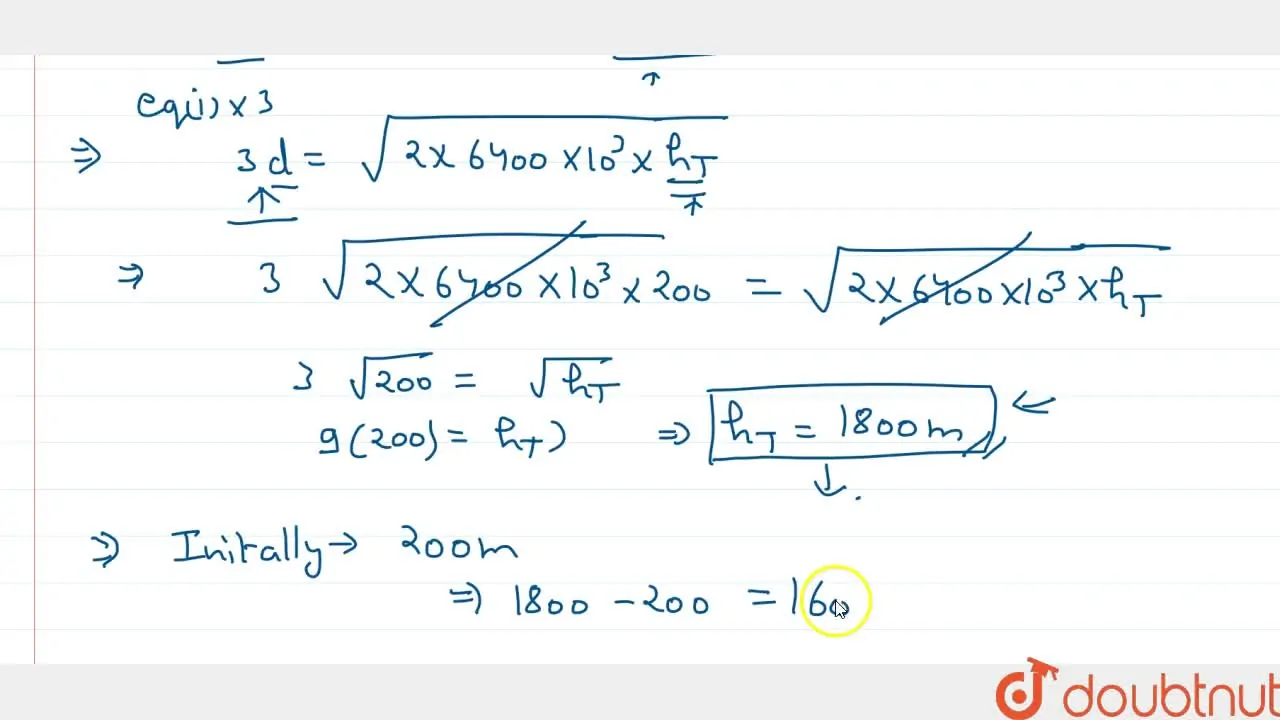 eq(i) x 3
⇒ 3d = √2 x 6400 x 10³ x hT
⇒ 3 √2 x 6400 x 10³ x 200 = √2 x 6400 x 10³ x hT
3 √200 = √hT
9(200) = hT) ⇒ hT = 1800m
⇒ Initally → 200m
⇒ 1800 - 200 = 160
doubtnut